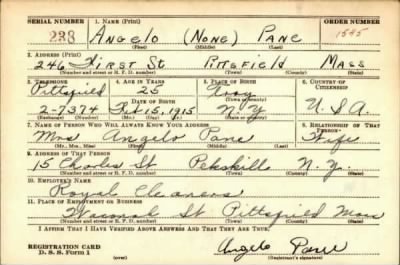 SERIAL NUMBER 1. NAME (Print) ORDER NUMBER
238 ANGELO (NONE) PANE 1545
(First) (Middle) (Last)
2. ADDRESS (Print)
246 FIRST ST PITTSFIELD MASS
(Number and street or R. F. D. number) (Town) (County) (State)
3. TELEPHONE 4. AGE IN YEARS 5. PLACE OF BIRTH 6. COUNTRY OF CITIZENSHIP
Pittsfield 25 Troy
DATE OF BIRTH (Town or county)
2-7374 Feb 15, 1915 N.Y. U.S.A.
(Exchange) (Number) (Mo.) (Day) (Yr.) (State or country)
7. NAME OF PERSON WHO WILL ALWAYS KNOW YOUR ADDRESS 8. RELATIONSHIP OF THAT PERSON
Mrs Angelo Pane Wife
(Mr., Mrs., Miss) (First) (Middle) (Last)
9. ADDRESS OF THAT PERSON
15 Charles St Pekskill N.Y.
(Number and street or R. F. D. number) (Town) (County) (State)
10. EMPLOYER'S NAME
Royal Cleaners
11. PLACE OF EMPLOYMENT OR BUSINESS
St. Pittsfield Mass
(Number and street or R. F. D. number) (Town) (County) (State)
I AFFIRM THAT I HAVE VERIFIED ABOVE ANSWERS AND THAT THEY ARE TRUE.
REGISTRATION CARD
D. S. S. Form 1 Angelo Pane
(Registrant's signature)